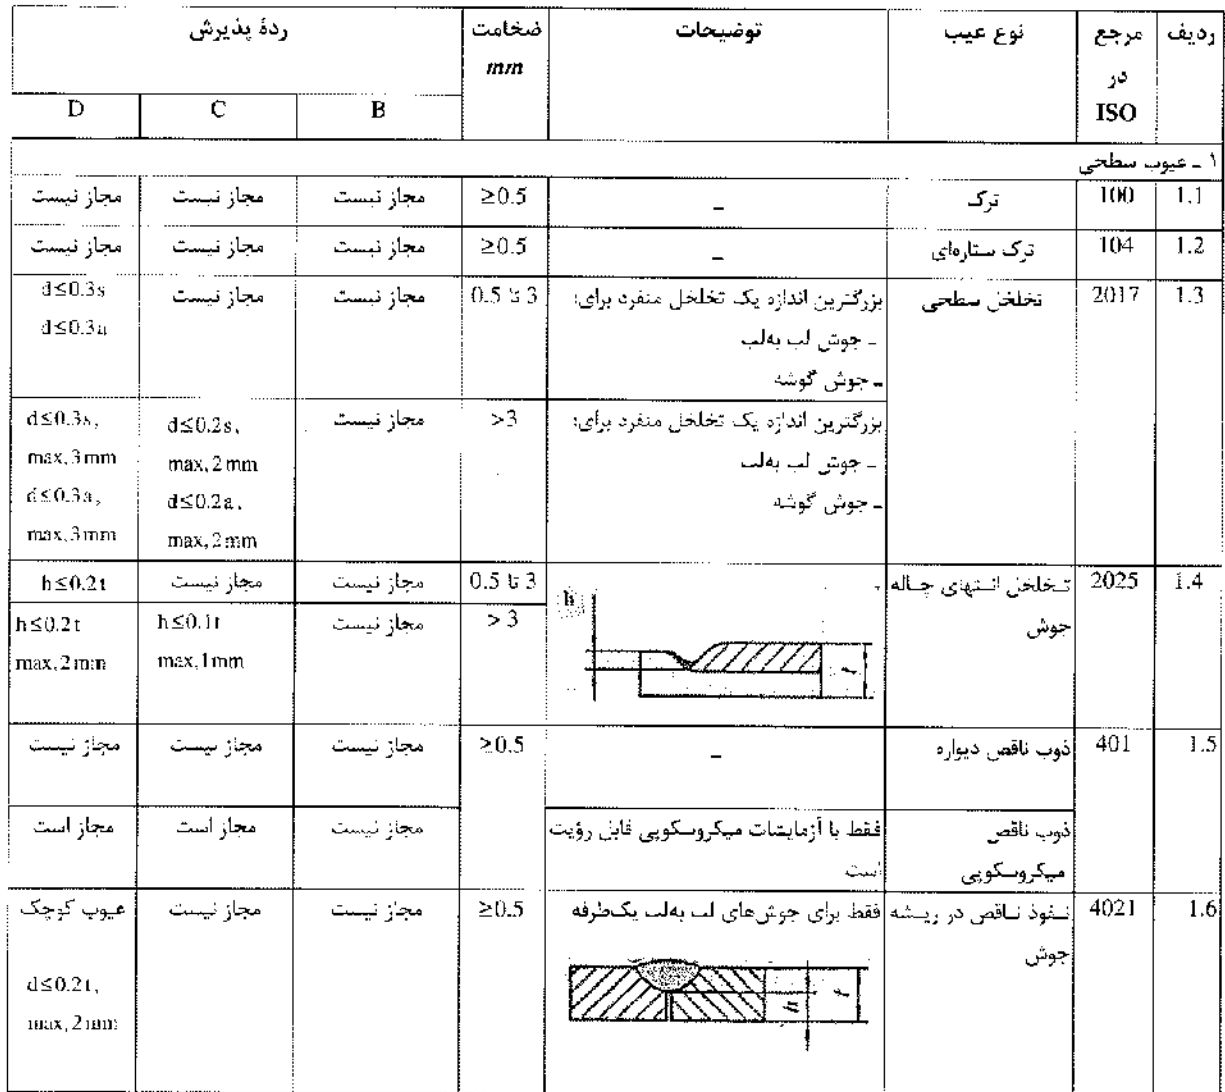 ردیف
مرجع در ISO
نوع عیب
توضیحات
ضخامت mm
ردهٔ پذیرش
B
C
D
۱ ـ عیوب سطحی
1.1
100
ترک
–
≥0.5
مجاز نیست
مجاز نیست
مجاز نیست
1.2
104
ترک ستاره‌ای
–
≥0.5
مجاز نیست
مجاز نیست
مجاز نیست
1.3
2017
تخلخل سطحی
بزرگترین اندازه یک تخلخل منفرد برای:
ـ جوش لب به‌لب
ـ جوش گوشه
0.5 تا 3
مجاز نیست
مجاز نیست
d≤0.3s
d≤0.3a
بزرگترین اندازه یک تخلخل منفرد برای:
ـ جوش لب به‌لب
ـ جوش گوشه
>3
مجاز نیست
d≤0.2s,
max,2mm
d≤0.2a,
max,2mm
d≤0.3s,
max,3mm
d≤0.3a,
max,3mm
1.4
2025
تـخلخل انـتهای چـاله
جوش
h
t
0.5 تا 3
مجاز نیست
مجاز نیست
h≤0.2t
> 3
مجاز نیست
h≤0.1t
max,1mm
h≤0.2t
max,2mm
1.5
401
ذوب ناقص دیواره
–
≥0.5
مجاز نیست
مجاز نیست
مجاز نیست
ذوب ناقص
میکروسکوپی
فقط با آزمایشات میکروسکوپی قابل رؤیت
است
مجاز نیست
مجاز است
مجاز است
1.6
4021
نـفوذ نـاقص در ریـشه
جوش
فقط برای جوش‌های لب به‌لب یک‌طرفه
h
t
≥0.5
مجاز نیست
مجاز نیست
عیوب کوچک
d≤0.2t,
max,2mm